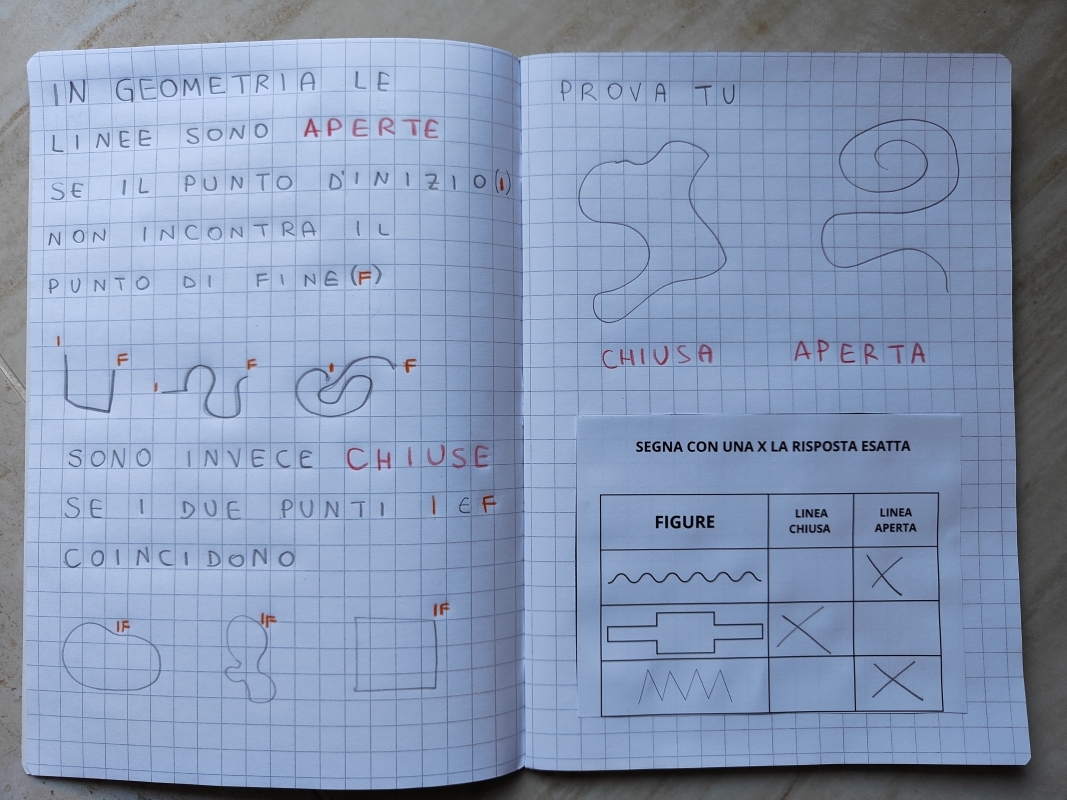 IN GEOMETRIA LE
LINEE SONO APERTE
SE IL PUNTO D'INIZIO(I)
NON INCONTRA IL
PUNTO DI FINE(F)
I F I F I F
SONO INVECE CHIUSE
SE I DUE PUNTI I E F
COINCIDONO
IF IF IF
PROVA TU
CHIUSA APERTA
SEGNA CON UNA X LA RISPOSTA ESATTA
FIGURE LINEA CHIUSA LINEA APERTA
X
X
X